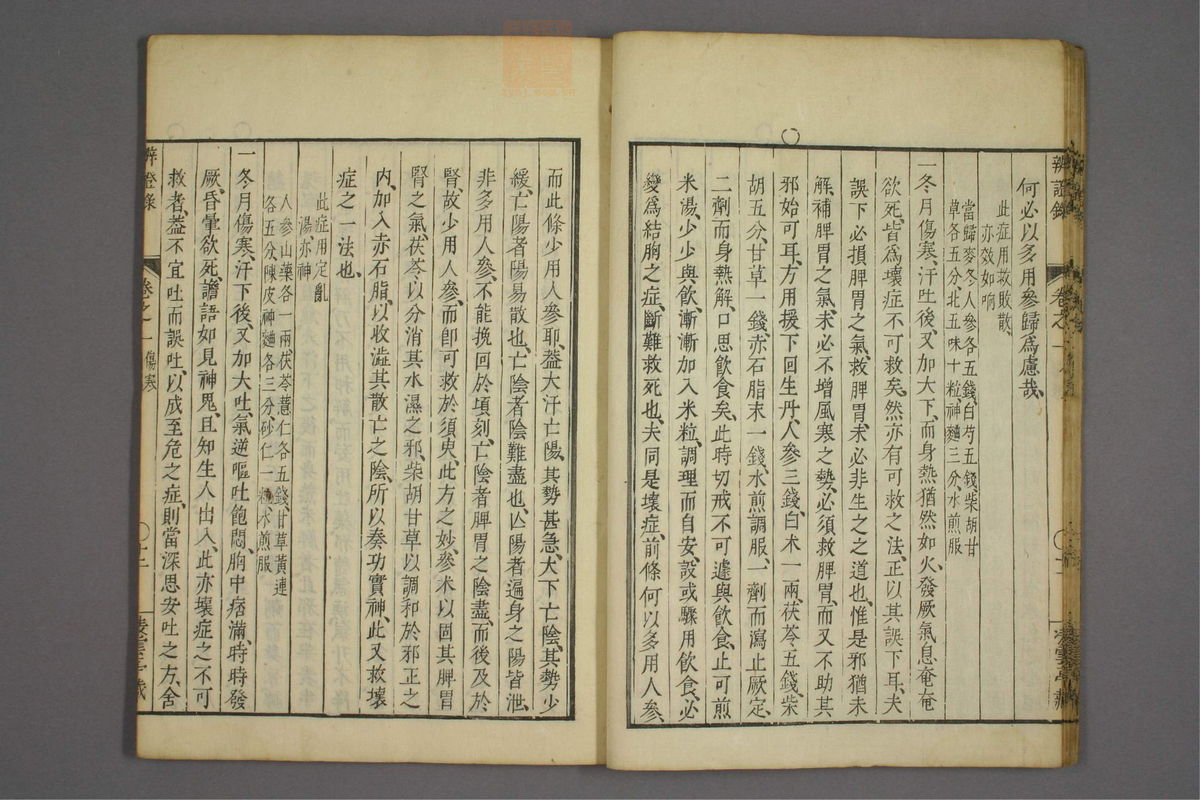 何必以多用參歸爲慮哉
此症用救敗散
亦效如响
當歸麥冬人參各五錢白芍五錢柴胡甘
草各五分北五味十粒神麯三分水煎服
一冬月傷寒汗吐後又加大下而身熱猶然如火發厥氣息奄奄
欲死皆爲壞症不可救矣然亦有可救之法正以其誤下耳夫
誤下必損脾胃之氣救脾胃未必非生之之道也惟是邪猶未
解補脾胃之氣未必不增風寒之勢必須救脾胃而又不助其
邪始可耳方用援下回生丹人參三錢白术一兩茯苓五錢柴
胡五分甘草一錢赤石脂末一錢水煎調服一劑而瀉止厥定
二劑而身熱解口思飲食矣此時切戒不可遽與飲食止可煎
米湯少少與飲漸漸加入米粒調理而自安設或驟用飲食必
變爲結胸之症斷難救死也夫同是壞症前條何以多用人參
而此條少用人參耶葢大汗亡陽其勢甚急大下亡陰其勢少
緩亡陽者陽易散也亡陰者陰難盡也亾陽者遍身之陽皆泄
非多用人參不能挽回於頃刻亡陰者脾胃之陰盡而後及於
腎故少用人參而卽可救於須臾此方之妙參术以固其脾胃
腎之氣茯苓以分消其水濕之邪柴胡甘草以調和於邪正之
内加入赤石脂以收澁其散亡之陰所以奏功實神此又救壞
症之一法也
此症用定亂
湯亦神
人參山藥各一兩茯苓薏仁各五錢甘草黃連
各五分陳皮神麯各三分砂仁一粒水煎服
一冬月傷寒汗下後又加大吐氣逆嘔吐飽悶胸中痞滿時時發
厥昏暈欲死譫語如見神鬼且知生人出入此亦壞症之不可
救者葢不宜吐而誤吐以成至危之症則當深思安吐之方舍
辨證錄 卷之一 傷寒